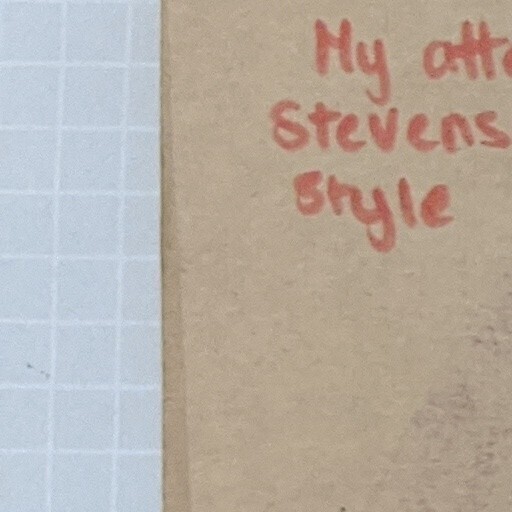 My atte
Stevens
style